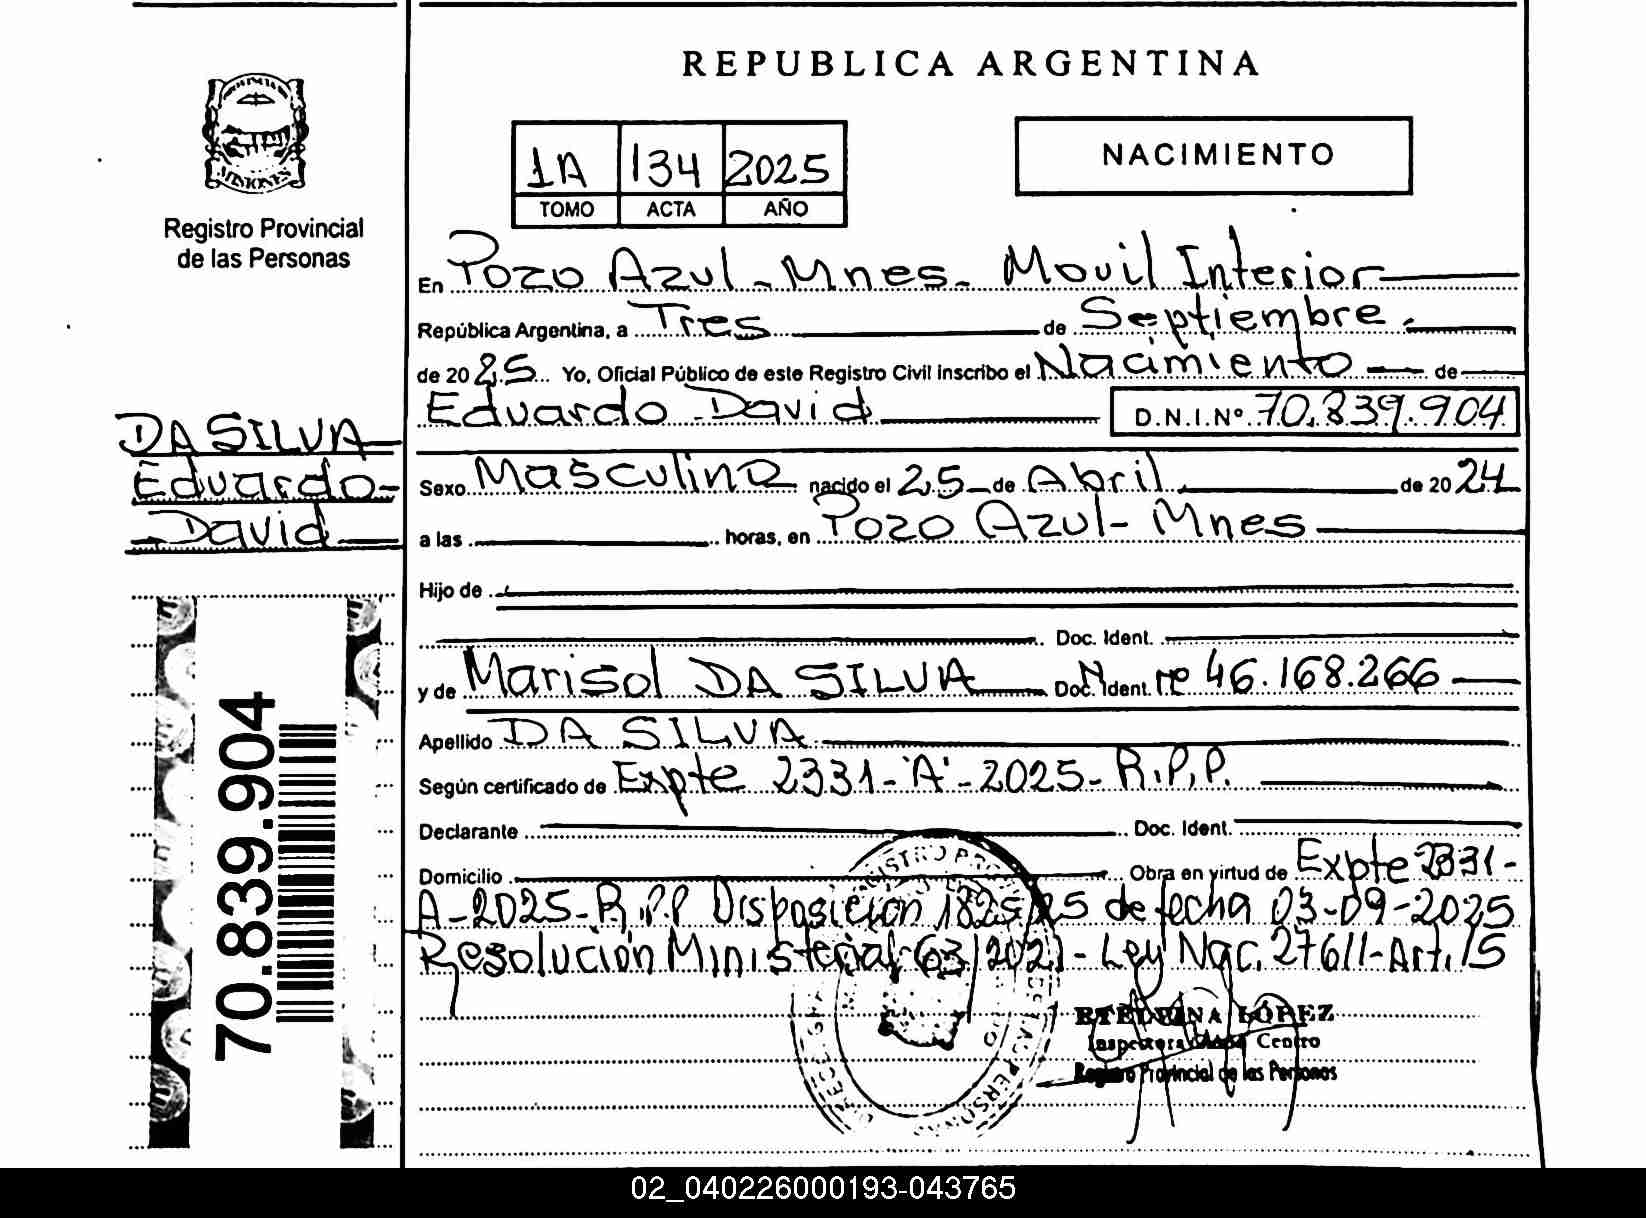 REPUBLICA ARGENTINA
MISIONES
Registro Provincial
de las Personas
1A 134 2025
TOMO ACTA AÑO
NACIMIENTO
En Pozo Azul - Mnes - Movil Interior
República Argentina, a Tres de Septiembre
de 2025 Yo, Oficial Público de este Registro Civil inscribo el Nacimiento de
Eduardo David D.N.I.Nº 70.839.904
DA SILVA
Eduardo
David
Sexo Masculino nacido el 25 de Abril de 2024
a las horas, en Pozo Azul - Mnes
Hijo de
Doc. Ident.
y de Marisol DA SILVA Doc. Ident. 46.168.266
Apellido DA SILVA
Según certificado de Expte 2331-"A"-2025-R.P.P.
Declarante Doc. Ident.
Domicilio Obra en virtud de Expte 2331-
A-2025-R.P.P Disposición 1825/25 de fecha 03-09-2025
Resolución Ministerial 63/2021 - Ley Nac. 27611-Art. 15
70.839.904
LÓPEZ
Inspectora Centro
Registro Provincial de las Personas
02_040226000193-043765